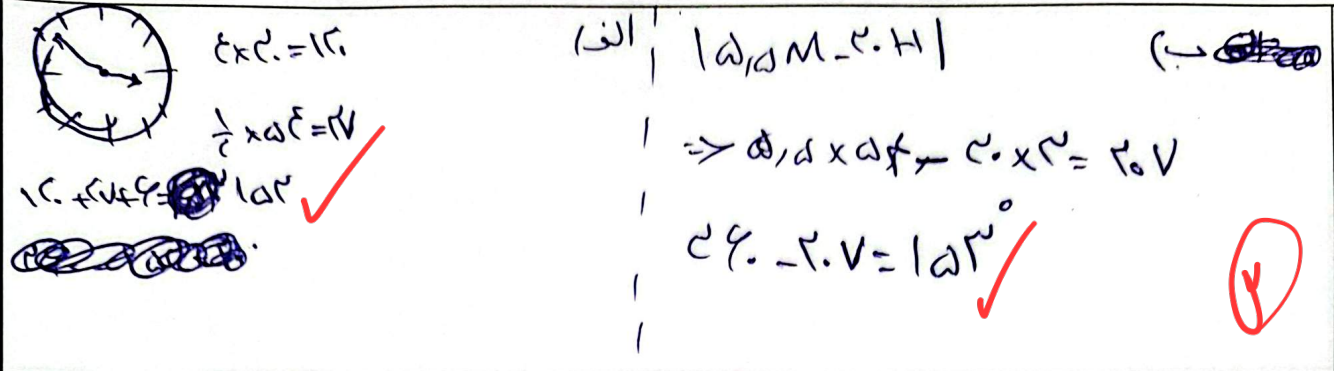 الف)
۴×۳۰=۱۲۰
۱/۲ ×۵۴=۲۷
۱۲۰+۲۷+۶= ۱۵۳
ب)
|۵,۵M-۳۰H|
=> ۵,۵×۵۴-۳۰×۳=۲۰۷
۳۶۰-۲۰۷=۱۵۳°
۲